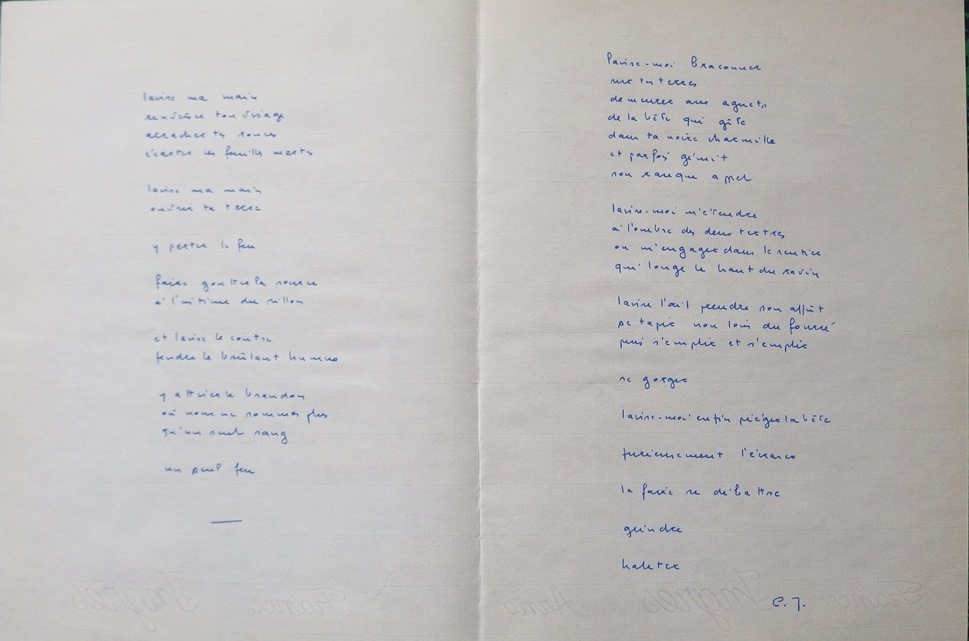 laisse ma main
renverser ton visage
arracher tes ronces
écarter les feuilles mortes
laisse ma main
ouvrir ta terre
y porter le feu
faire goutter la source
à l'intime du sillon
et laisse le contre
fendre le brûlant humus
y attiser le brandon
où nous ne sommes plus
qu'un seul sang
un seul feu
laisse-moi braconner
sur tes terres
demeurer aux aguets
de la bête qui gîte
dans ta noire charmille
et parfois gémit
son rauque appel
laisse-moi m'étendre
à l'ombre des deux tertres
ou m'engager dans le sentier
qui longe le haut du ravin
laisse l'œil prendre son affût
se tapir non loin du fourré
puis s'emplir et s'emplir
se gorger
laisse-moi enfin piéger la bête
furieusement l'
la faire se débattre
geindre
haleter
C. J.
France Ingres
France Ingres